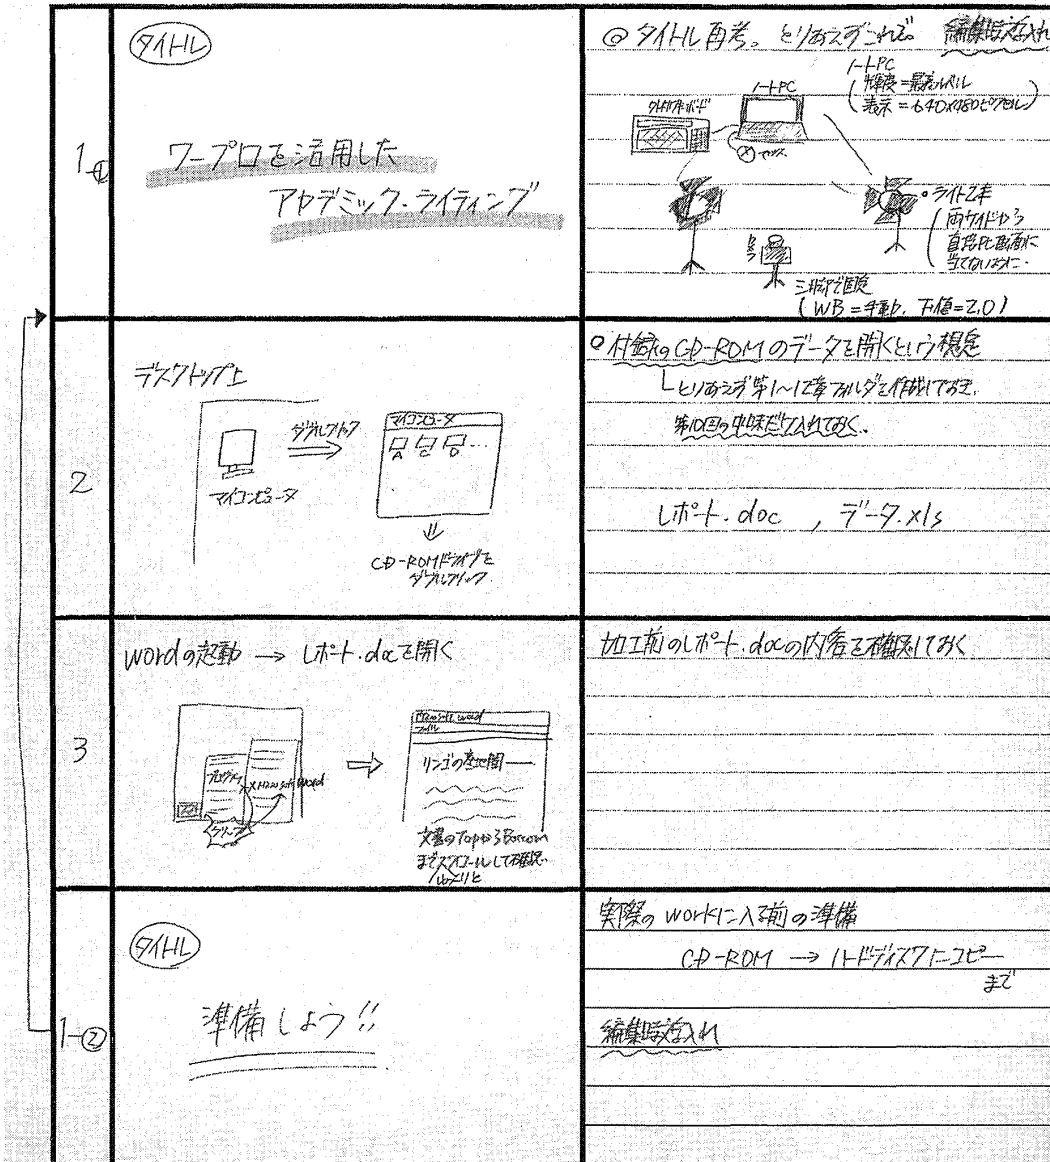 1-①
タイトル
ワープロを活用した
アカデミック・ライティング
◎タイトル再考。とりあえずこれで。 編集時文字入れ
ノートPC
(輝度=最高レベル
表示=640×480ピクセル)
ノートPC
マウス
ライト2本
(両サイドから
直接PC画面に
当てないように。
カメラ
三脚で固定
(WB=手動、F値=2.0)
2
デスクトップ上
マイコンピュータ
ダブルクリック
マイコンピュータ
A C D ...
CD-ROMドライブを
ダブルクリック
○付録のCD-ROMのデータを開くという想定
とりあえず第1〜12章フォルダを作成しておき、
第10回の中味だけ入れておく。
レポート.doc , データ.xls
3
Wordの起動 → レポート.docを開く
プログラム
Microsoft Word
クリック
Microsoft Word
ファイル
リンゴの
文書のTopからBottom
までスクロールして確認。
ゆっくりと
加工前のレポート.docの内容を確認しておく
1-②
タイトル
準備しよう!!
実際のworkに入る前の準備
CD-ROM → ハードディスクにコピー
まで
編集時文字入れ